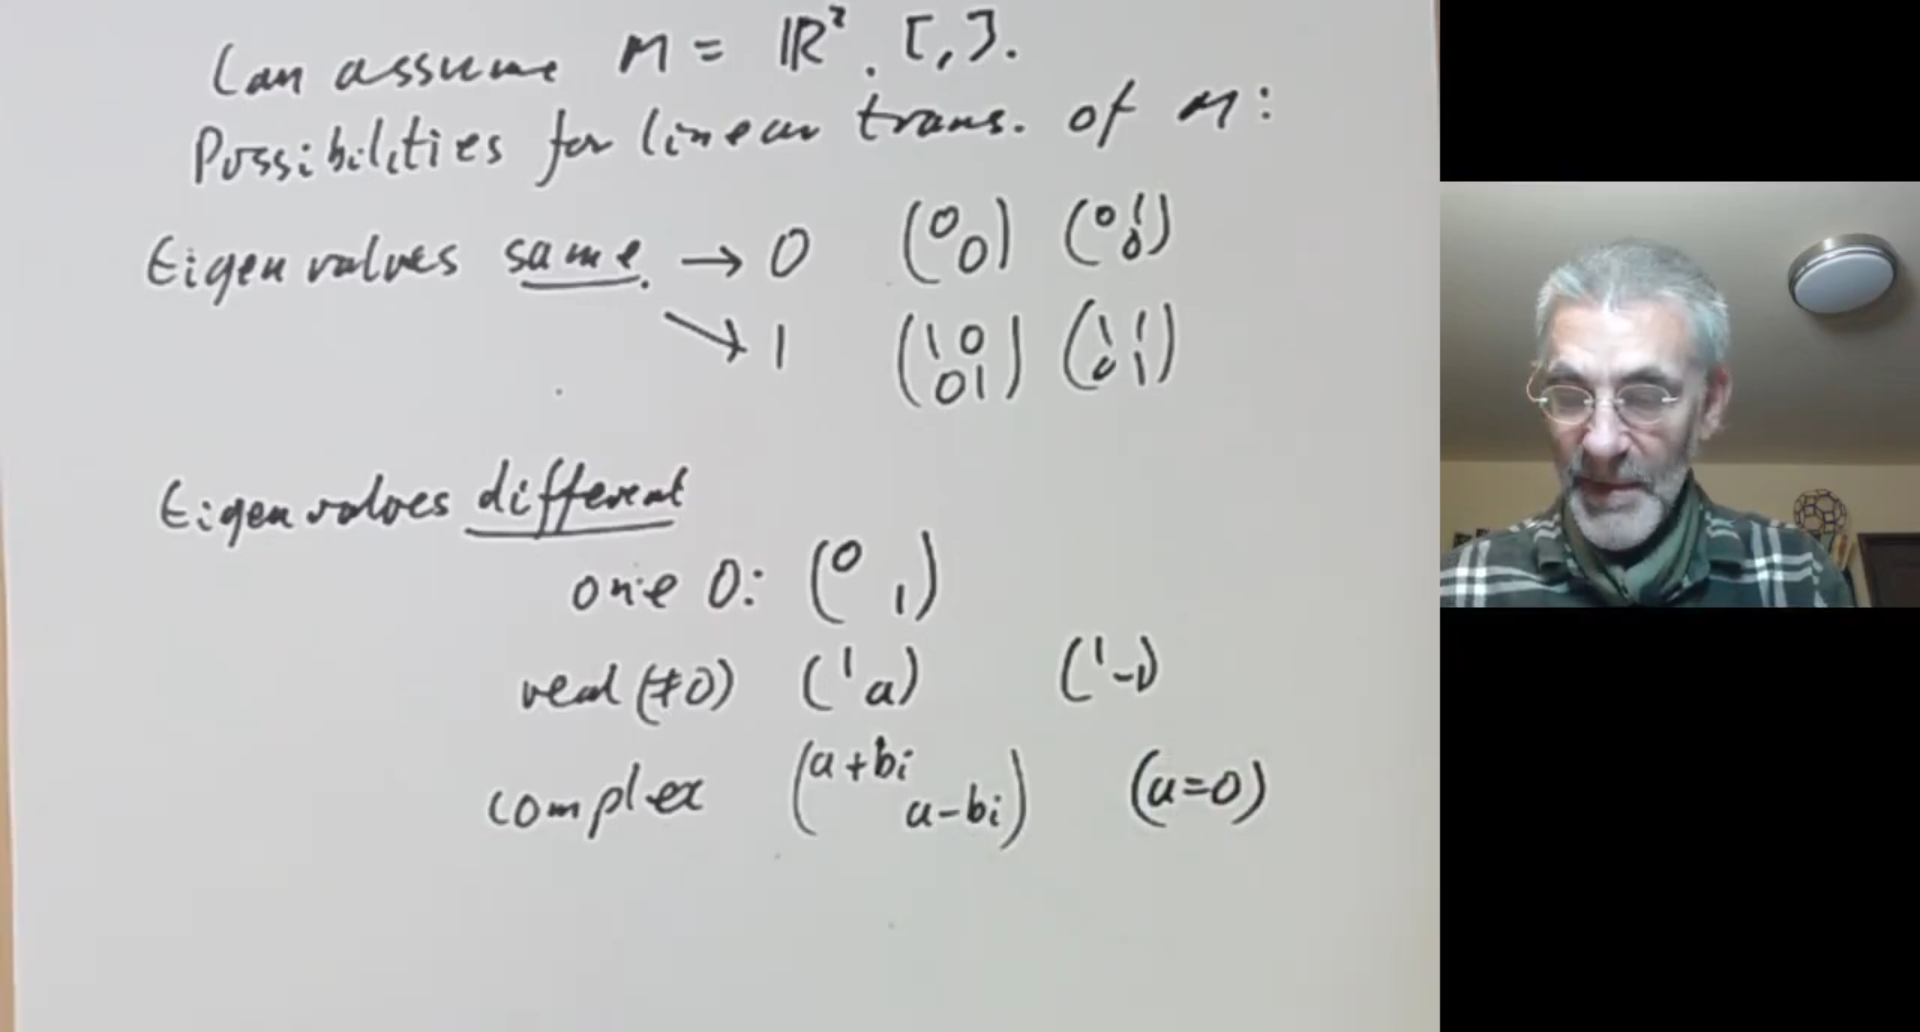 Can assume M = ℝ². [,].
Possibilities for linear trans. of M:
Eigenvalues same. → 0 (0 0) (0 1 0)
↘ 1 (1 0 0 1) (1 1 0 1)
Eigenvalues different
one 0: (0 1)
real (≠0) (1 a) (1 -1)
complex (a+bi a-bi) (a=0)